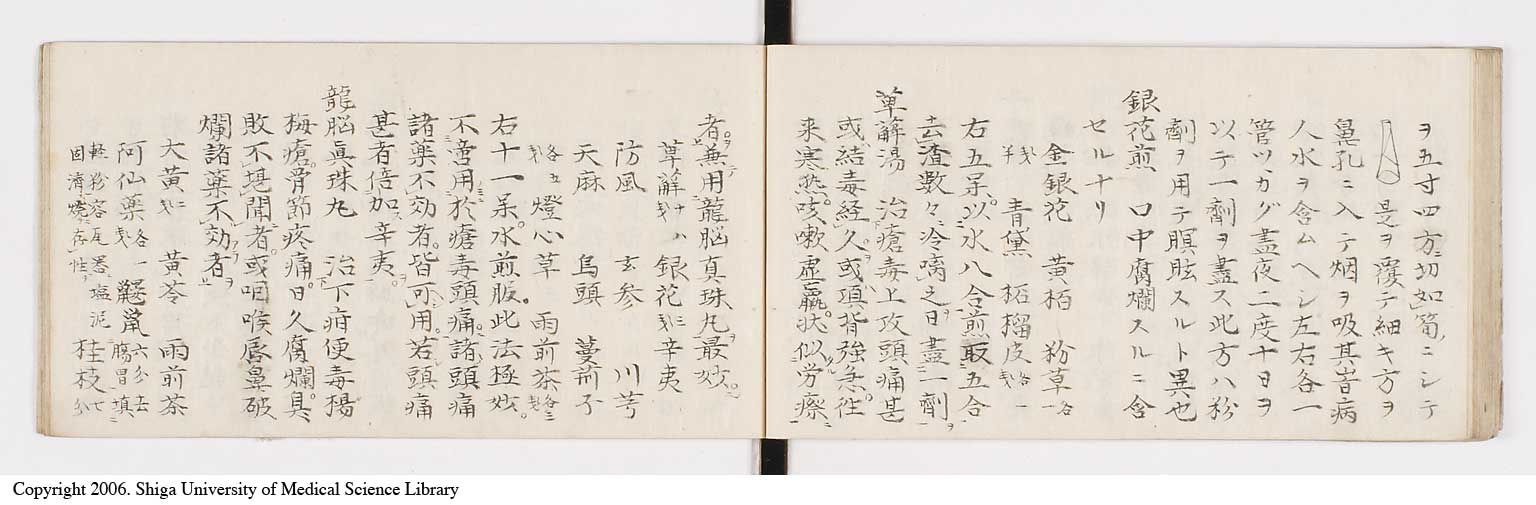 ヲ五寸四方ニ切如筍ニシテ
是ヲ覆テ細キ方ヲ
鼻孔ニ入テ烟ヲ吸其旹病
人水ヲ含ムヘシ左右各一
管ツヽカグ盡夜二度十日ヲ
以テ一劑ヲ盡ス此方ハ粉
劑ヲ用テ瞑眩スルト異也
銀花煎 口中腐爛スルニ含
セルナリ
金銀花 黄栢 粉草各一
匁半 青黛 柘榴皮各五匁
右五呆以水八合煎取五合
去渣数々冷嗬之日盡一劑ヲ
萆薢湯 治瘡毒上攻頭痛甚
或結毒経久或項背強急徃
来寒熱咳嗽虚羸状似労瘵
者兼用龍脳真珠丸最妙
萆薢 銀花 辛夷
防風 玄参 川芎
天麻 烏頭 蔓荊子
各五匁 燈心草 雨前茶
右十一呆水煎服此法極妙
不啻用於瘡毒頭痛諸頭痛
諸藥不効者皆可用若頭痛
甚者倍加辛夷
龍脳眞珠丸 治下疳便毒楊
梅瘡骨節疼痛日久腐爛臭
敗不堪聞者或咽喉唇鼻破
爛諸藥不効者
大黄 黄芩 雨前茶
阿仙薬各一匁 鼹鼠六分去腸胃填
軽粉容瓦器塩泥固濟燒存性 桂枝七分